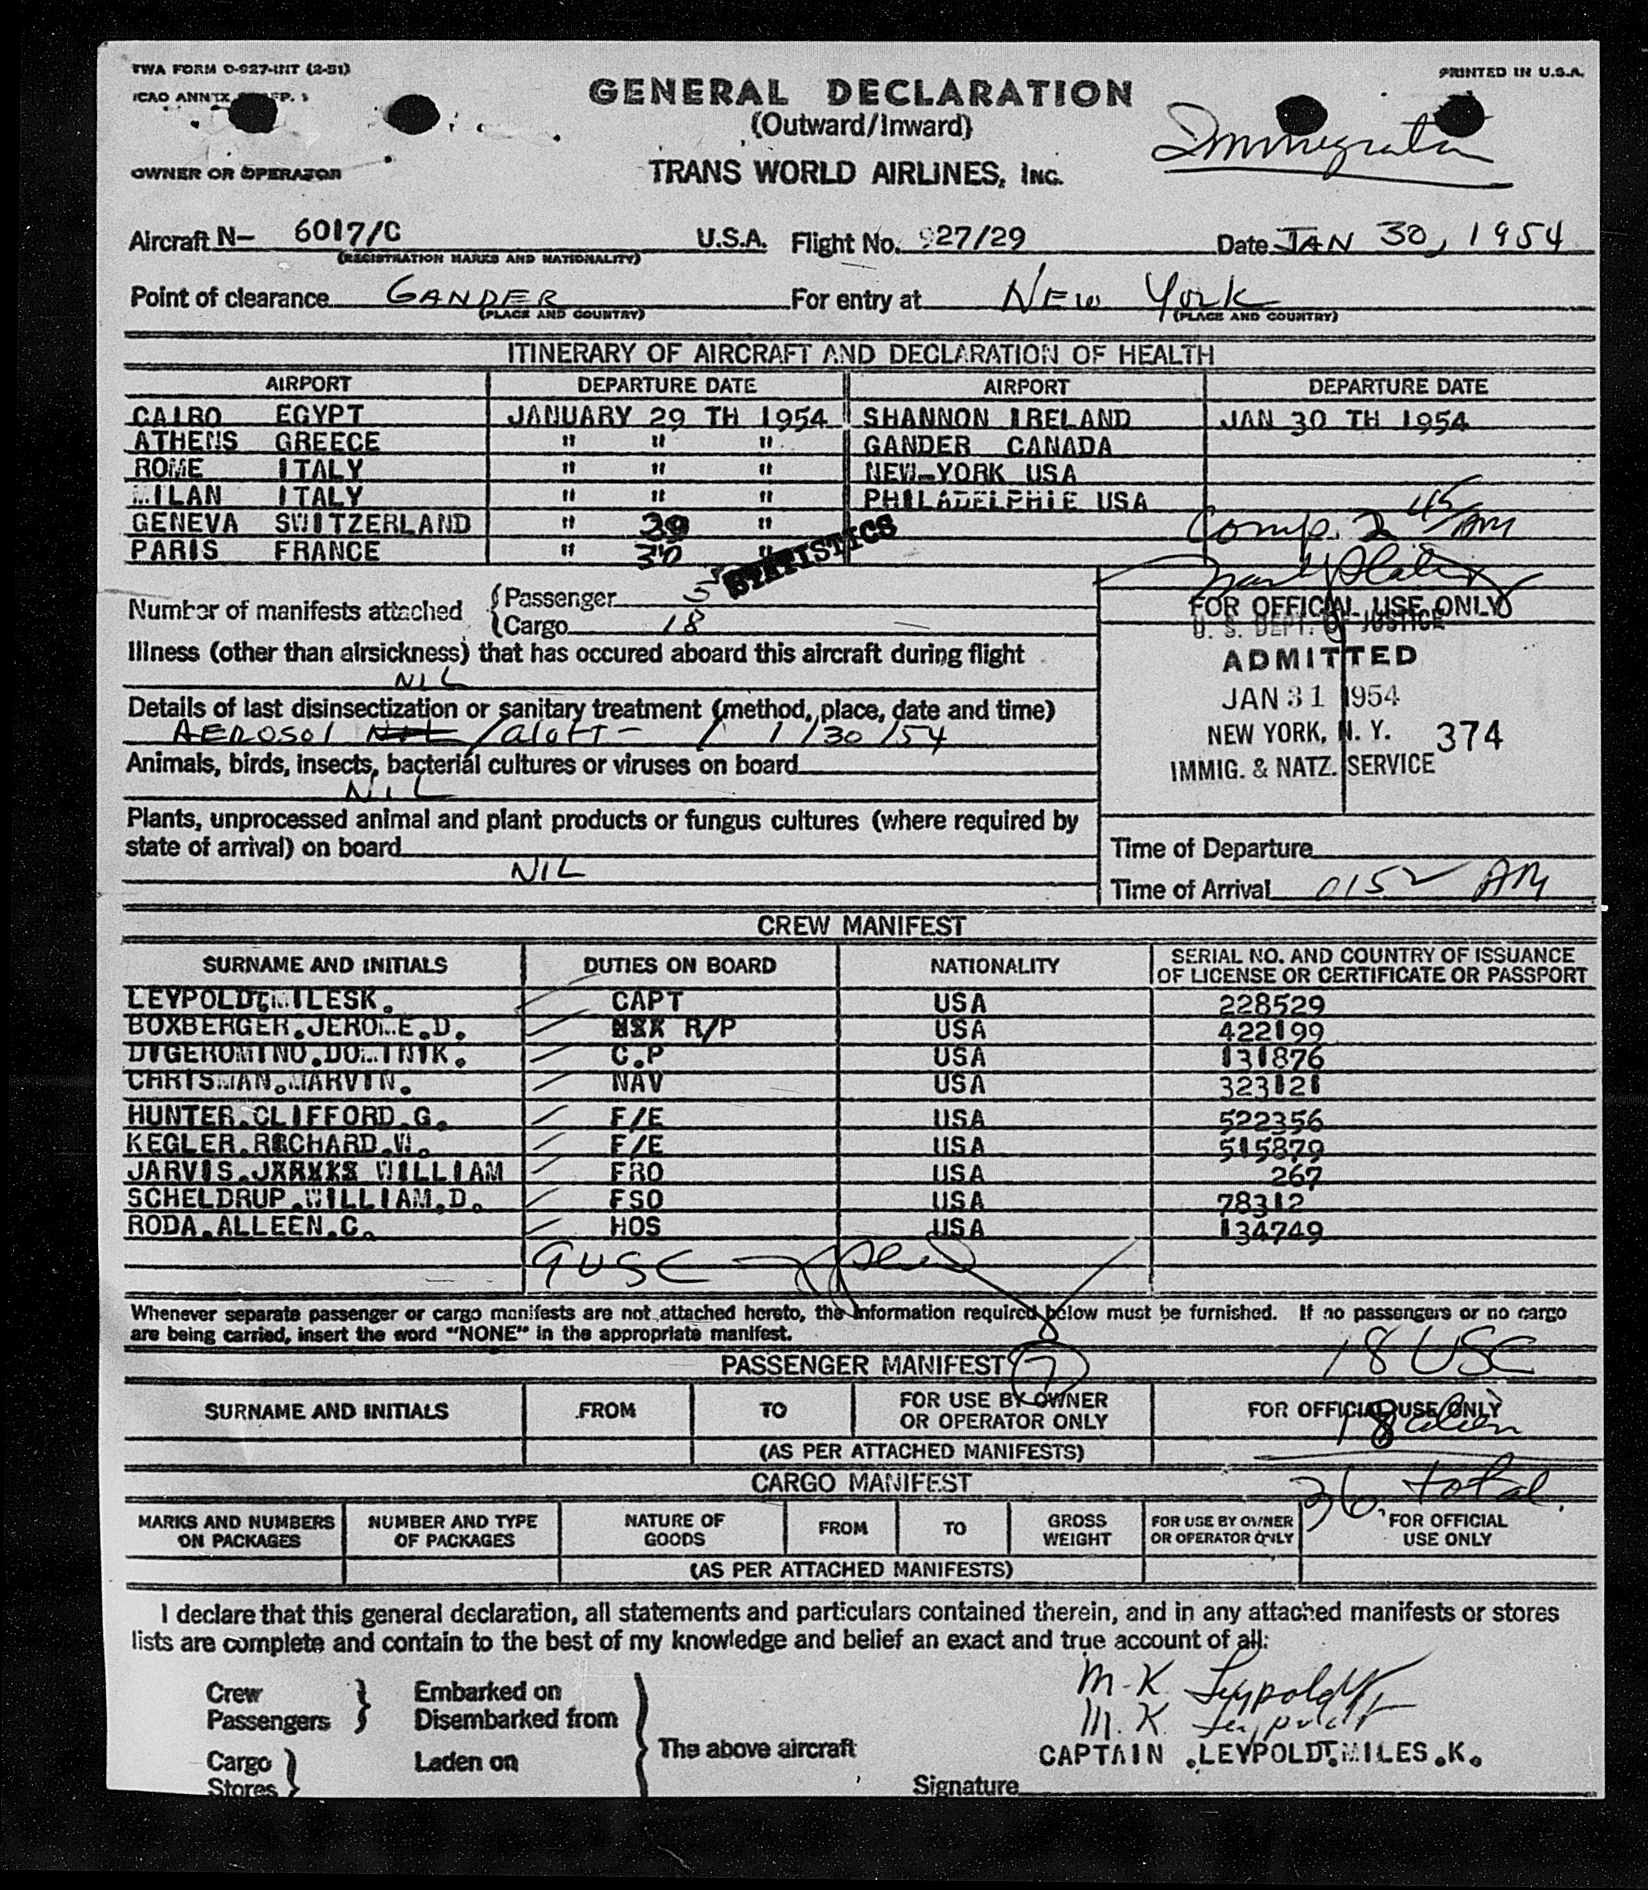 TWA FORM O-927-INT (2-51)
PRINTED IN U.S.A.
ICAO ANNEX
GENERAL DECLARATION
(Outward/Inward)
Immigration
OWNER OR OPERATOR
TRANS WORLD AIRLINES, INC.
Aircraft N- 6017/C U.S.A. Flight No. 927/29 Date JAN 30, 1954
(REGISTRATION MARKS AND NATIONALITY)
Point of clearance GANDER For entry at NEW YORK
(PLACE AND COUNTRY) (PLACE AND COUNTRY)
ITINERARY OF AIRCRAFT AND DECLARATION OF HEALTH
AIRPORT DEPARTURE DATE AIRPORT DEPARTURE DATE
CAIRO EGYPT JANUARY 29 TH 1954 SHANNON IRELAND JAN 30 TH 1954
ATHENS GREECE " " " GANDER CANADA
ROME ITALY " " " NEW-YORK USA
MILAN ITALY " " " PHILADELPHIE USA
GENEVA SWITZERLAND " 30 " Comp. 2 45 AM
PARIS FRANCE " 30 "
STATISTICS
Number of manifests attached { Passenger 5
{ Cargo 18
FOR OFFICIAL USE ONLY
U. S. DEPT. OF JUSTICE
ADMITTED
JAN 31 1954
NEW YORK, N. Y. 374
IMMIG. & NATZ. SERVICE
Illness (other than airsickness) that has occured aboard this aircraft during flight
NIL
Details of last disinsectization or sanitary treatment (method, place, date and time)
AEROSOL NIL / aloft - / 1/30/54
Animals, birds, insects, bacterial cultures or viruses on board
NIL
Plants, unprocessed animal and plant products or fungus cultures (where required by
state of arrival) on board
NIL
Time of Departure
Time of Arrival 0152 AM
CREW MANIFEST
SURNAME AND INITIALS DUTIES ON BOARD NATIONALITY SERIAL NO. AND COUNTRY OF ISSUANCE
OF LICENSE OR CERTIFICATE OR PASSPORT
LEYPOLDT.MILESK. CAPT USA 228529
BOXBERGER.JEROME.D. R/P USA 422199
DIGEROMINO.DOMINIK. C.P USA 131876
CHRISMAN.MARVIN. NAV USA 323121
HUNTER.CLIFFORD.G. F/E USA 522356
KEGLER.RICHARD.W. F/E USA 515879
JARVIS. WILLIAM FRO USA 267
SCHELDRUP.WILLIAM.D. FSO USA 78312
RODA.ALLEEN.C. HOS USA 134749
9 USC
Whenever separate passenger or cargo manifests are not attached hereto, the information required below must be furnished. If no passengers or no cargo
are being carried, insert the word "NONE" in the appropriate manifest.
PASSENGER MANIFEST 18 USC
SURNAME AND INITIALS FROM TO FOR USE BY OWNER
OR OPERATOR ONLY FOR OFFICIAL USE ONLY
18 alien
(AS PER ATTACHED MANIFESTS)
CARGO MANIFEST 36 total.
MARKS AND NUMBERS
ON PACKAGES NUMBER AND TYPE
OF PACKAGES NATURE OF
GOODS FROM TO GROSS
WEIGHT FOR USE BY OWNER
OR OPERATOR ONLY FOR OFFICIAL
USE ONLY
(AS PER ATTACHED MANIFESTS)
I declare that this general declaration, all statements and particulars contained therein, and in any attached manifests or stores
lists are complete and contain to the best of my knowledge and belief an exact and true account of all:
Crew Embarked on
Passengers Disembarked from
Cargo Laden on
Stores
The above aircraft
M. K. Leypoldt
M. K. Leypoldt
CAPTAIN .LEYPOLDT.MILES.K.
Signature